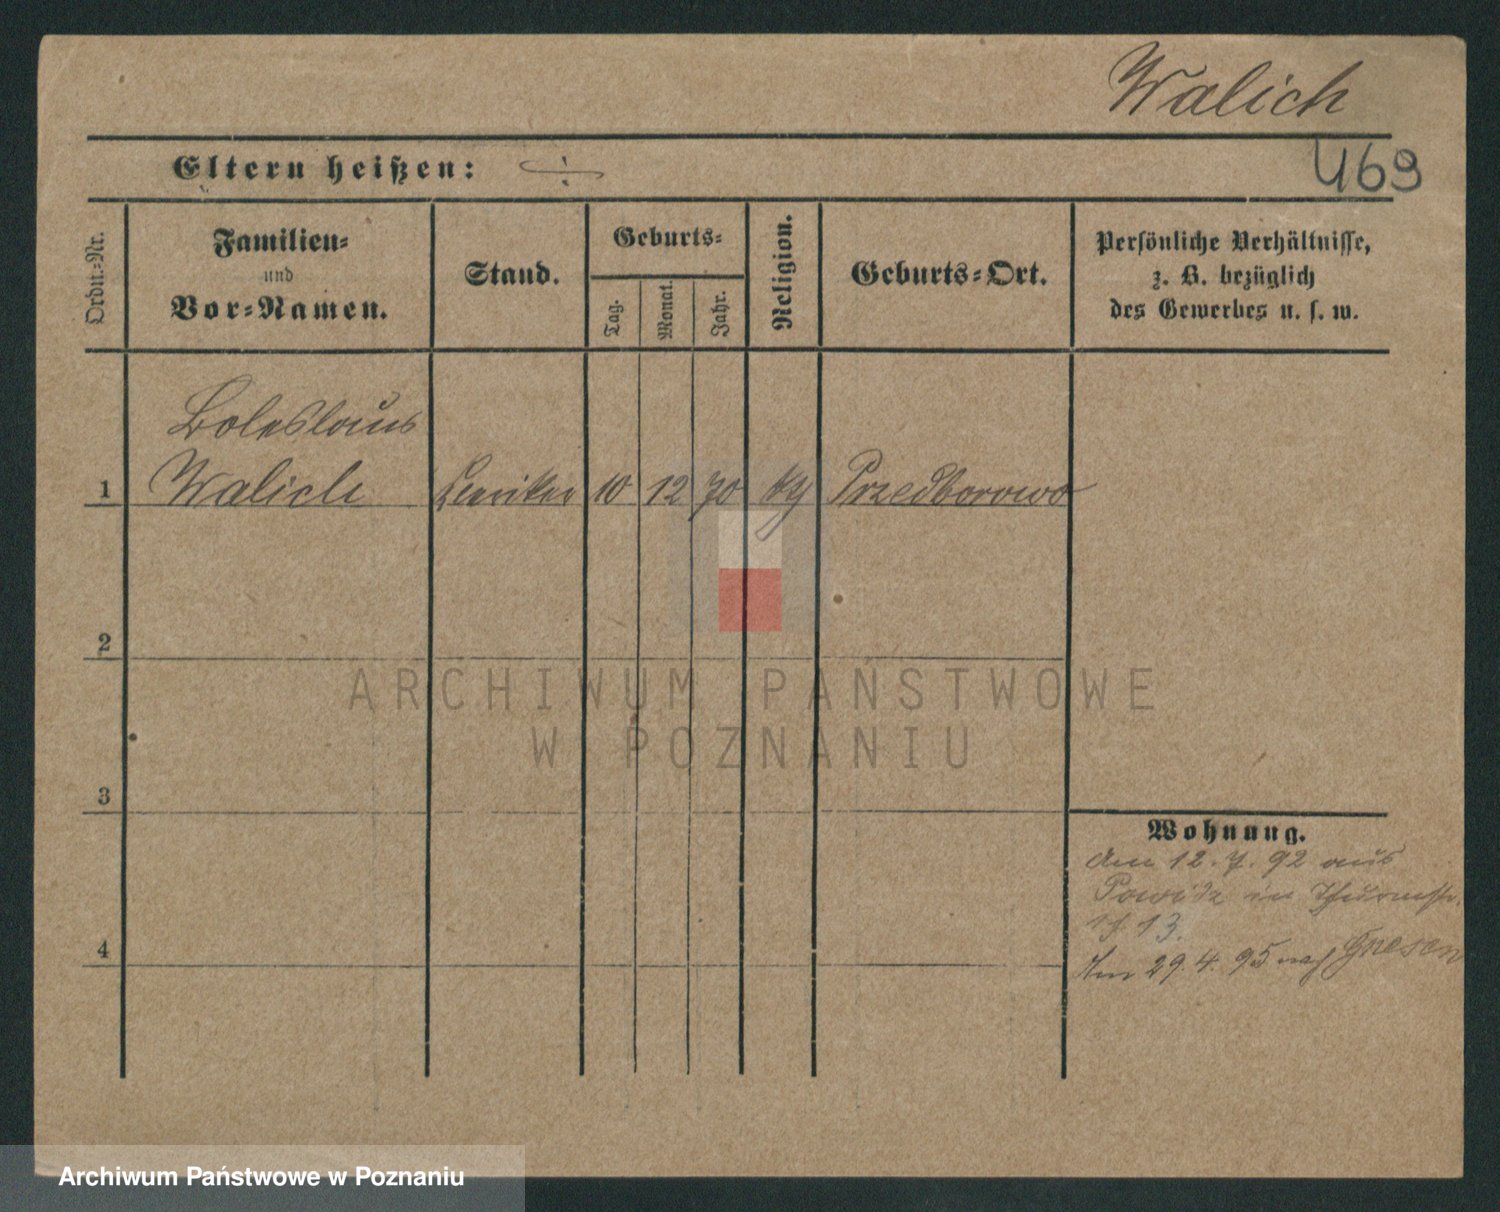 Walich
Eltern heißen: ÷
469
Ordn.-Nr.
Familien-
und
Vor-Namen.
Stand.
Geburts-
Tag.
Monat.
Jahr.
Religion.
Geburts-Ort.
Persönliche Verhältnisse,
z. B. bezüglich
des Gewerbes u. s. w.
Boleslaus
1 Walich 10 12 70 Przedborowo
2
ARCHIWUM PAŃSTWOWE
W POZNANIU
3
Wohnung.
Am 12. 7. 92 aus
Powidz in
13.
4
Am 29. 4. 95 nach Gnesen
Archiwum Państwowe w Poznaniu